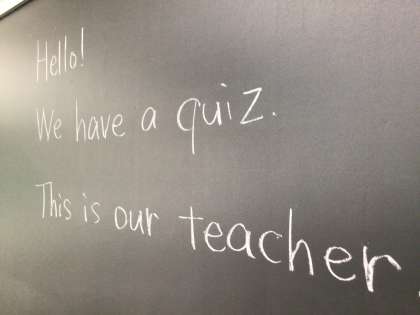 Hello!
We have a quiz.
This is our teacher.